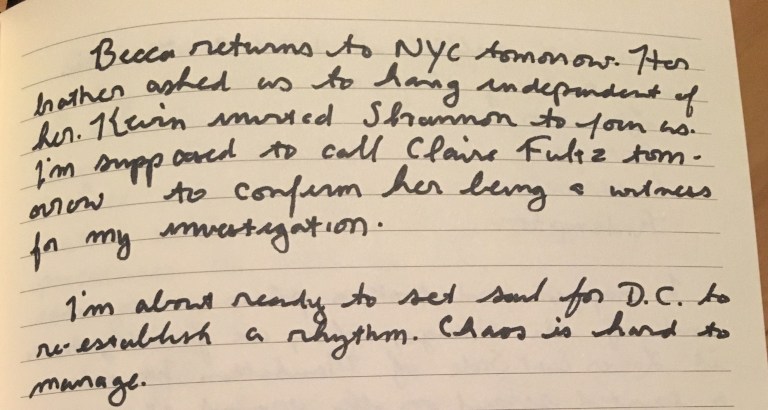 Becca returns to NYC tomorrow. Her
brother asked us to hang independent of
her. Kevin invited Shannon to join us.
I'm supposed to call Claire Fultz tom-
orrow to confirm her being a witness
for my investigation.
I'm about ready to set sail for D.C. to
re-establish a rhythm. Chaos is hard to
manage.